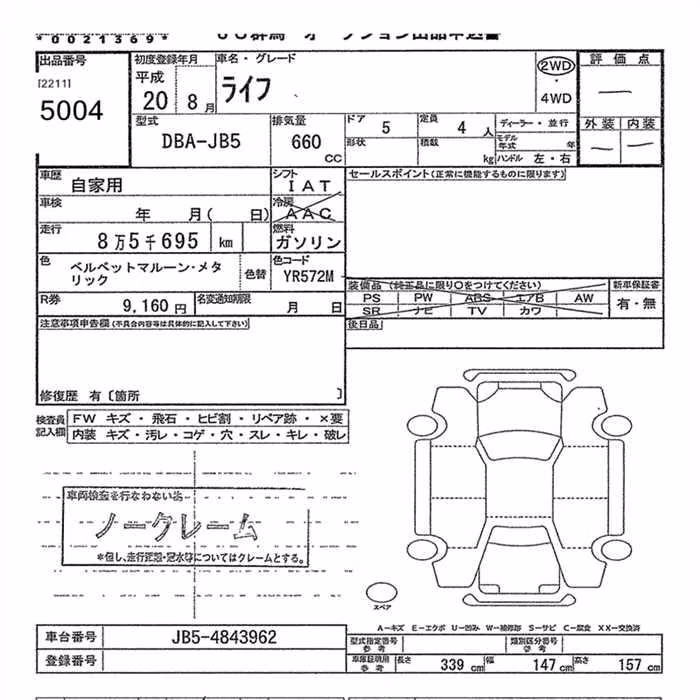 *0021369*
JU群馬 オークション出品申込書
出品番号
[2211]
5004
初度登録年月
平成
20 8月
車名・グレード
ライフ
2WD
・
4WD
評価点
—
外装 内装
— —
型式
DBA-JB5
排気量
660
CC
ドア
5
定員
4 人
ディーラー・並行
形状
積載
kg
モデル年式 年
ハンドル 左・右
車歴
自家用
シフト
IAT
セールスポイント(正常に機能するものに限ります)
車検
年 月( 日)
冷房
AAC
走行
8万5千695 km
燃料
ガソリン
色
ベルベットマルーン・メタリック
色替
色コード
YR572M
装備品(純正品に限り○をつけてください)
新車保証書
PS PW ABS エアB AW
有・無
SR ナビ TV カワ
R券
9,160円
名変通知期限
月 日
後日品
注意事項申告欄(不具合内容等は具体的に記入して下さい)
修復歴 有〔箇所 〕
検査員記入欄
FW キズ・飛石・ヒビ割・リペア跡・×要
内装 キズ・汚レ・コゲ・穴・スレ・キレ・破レ
車両検査を行なわない為
ノークレーム
*但し、走行距離・冠水車についてはクレームとする。
スペア
A−キズ E−エクボ U−凹み W−補修跡 S−サビ C−腐食 XX−交換済
車台番号
JB5-4843962
型式指定番号
参考
類別区分番号
参考
登録番号
車庫証明用
参考
長さ 339 cm 幅 147 cm 高さ 157 cm